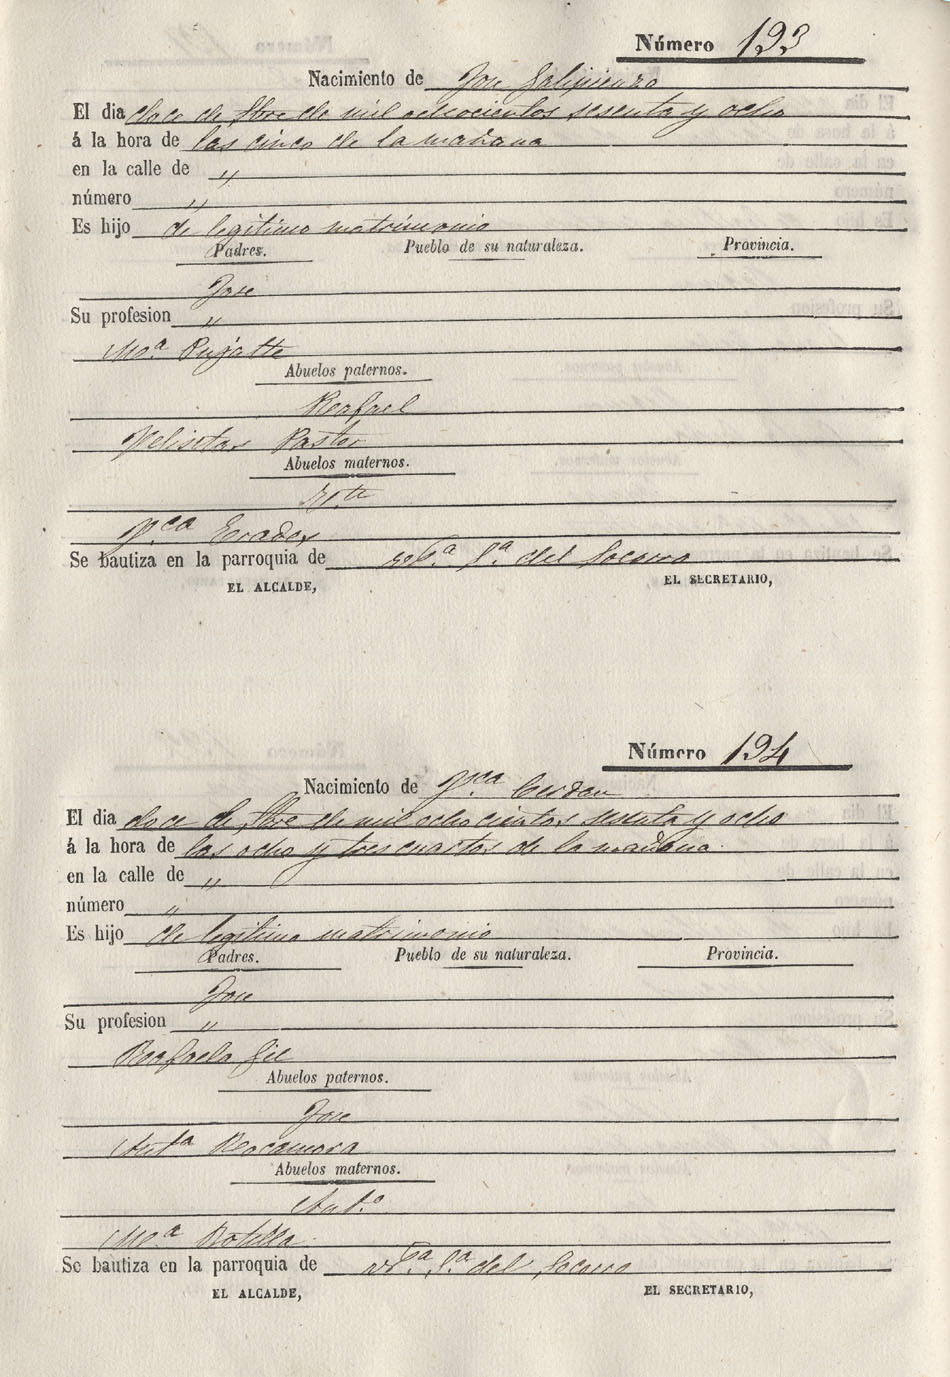 Número 193
Nacimiento de Jose Salinienzo
El dia doce de Sbre de mil ochocientos sesenta y ocho
á la hora de las cinco de la mañana
en la calle de "
número "
Es hijo de legitimo matrimonio
Padres. Pueblo de su naturaleza. Provincia.
Jose
Su profesion "
Mª Pujalte
Abuelos paternos.
Rafael
Pastor
Abuelos maternos.
Fca
Se bautiza en la parroquia de Sª del Socorro
EL ALCALDE, EL SECRETARIO,
Número 194
Nacimiento de Fca Cerdan
El dia doce de Sbre de mil ochocientos sesenta y ocho
á la hora de las ocho y tres cuartos de la mañana
en la calle de "
número "
Es hijo de legitimo matrimonio
Padres. Pueblo de su naturaleza. Provincia.
Jose
Su profesion "
Rafaela Gil
Abuelos paternos.
Jose
Antª Rocamora
Abuelos maternos.
Antº
Mª Botella
Se bautiza en la parroquia de Sª del Socorro
EL ALCALDE, EL SECRETARIO,